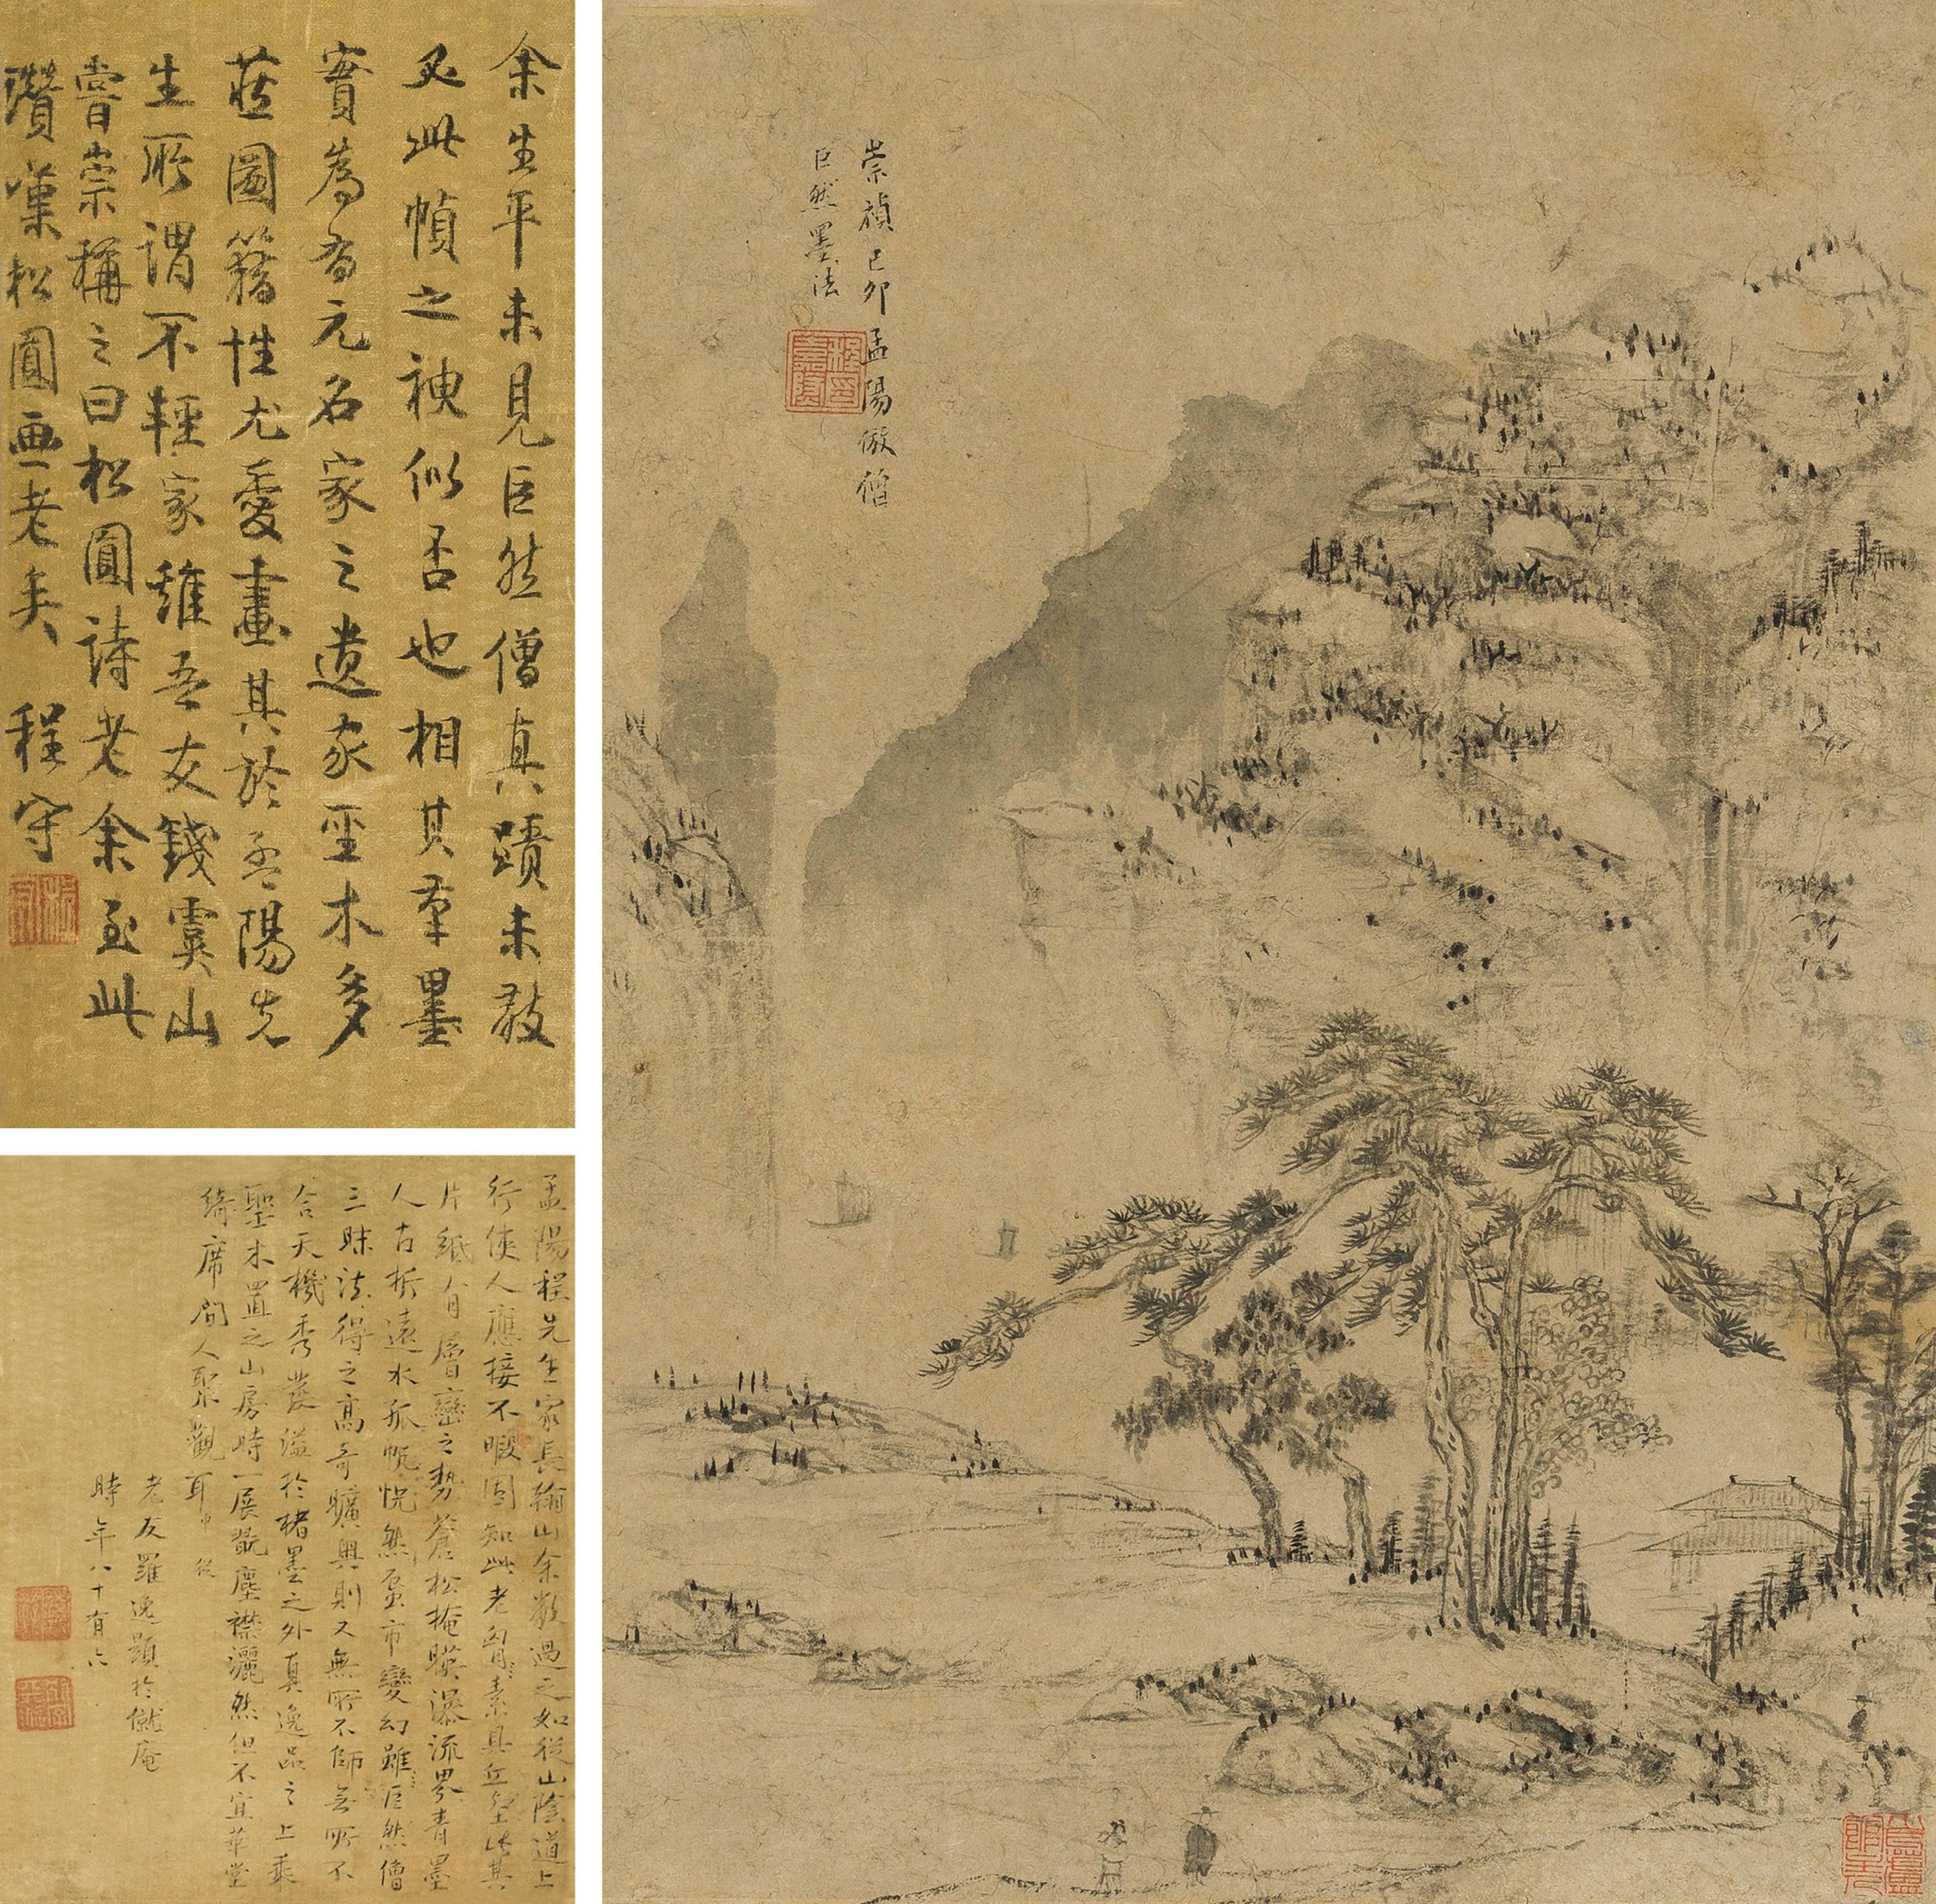 崇禎己卯孟陽倣僧
巨然墨法
余生平未見巨然僧真蹟未敢
定此幀之神似否也相其筆墨
實為有元名家之遺家聖木多
藏圖籍性尤愛畫其於孟陽先
生所謂不輕家雞吾友錢虞山
嘗崇稱之曰松圓詩老余至此
讚嘆松圓画老矣 程守
孟陽程先生家長翰山余數過之如從山陰道上
行使人應接不暇固知此老胷素具丘壑此其
片紙有層巒之勢蒼松掩映瀑流界青墨
人古析遠水孤帆恍然蜃市變幻雖巨然僧
三昧法得之高奇曠興則又無所不師無所不
合天機秀發溢於楮墨之外真逸品之上乘
聖木置之山房時一展翫塵襟灑然但不宜華堂
綺席間人聚觀耳
老友羅逸題於僦庵
時年八十有六